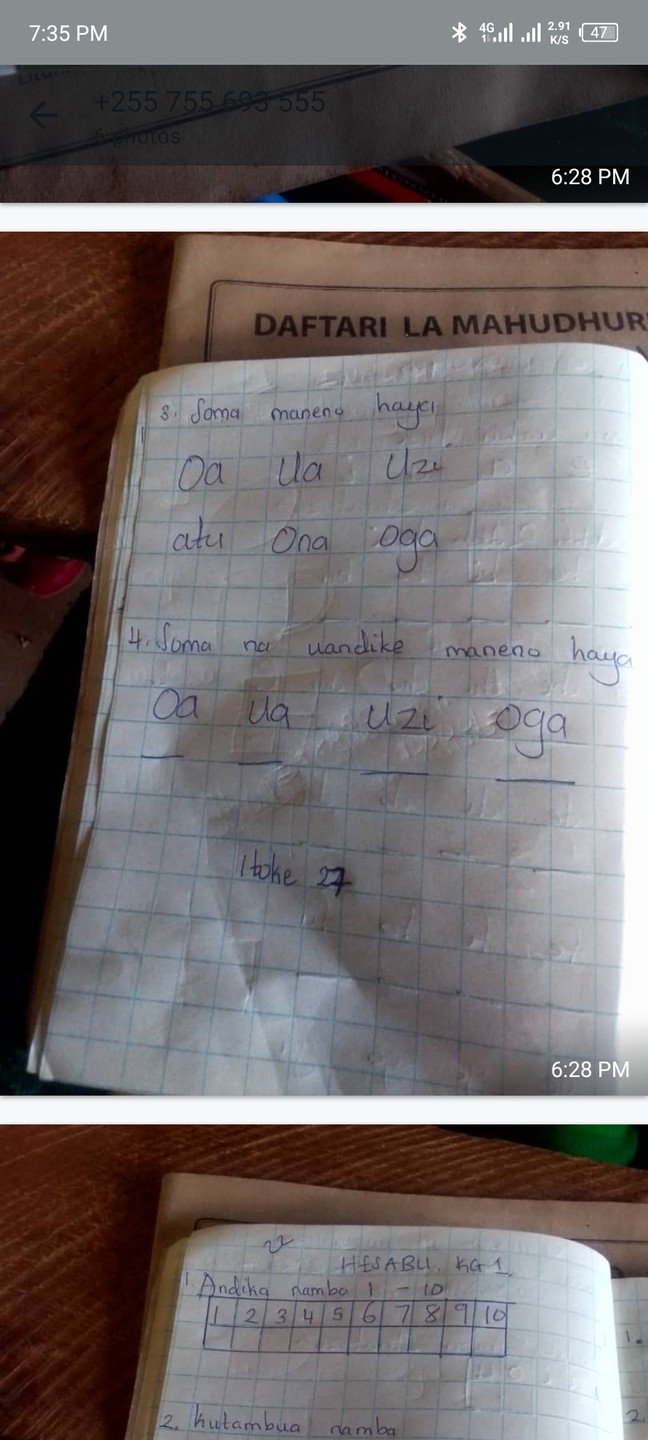 7:35 PM
4G
2.91
K/S
47
+255 755 693 555
6 photos
6:28 PM
DAFTARI LA MAHUDHUR
3. Soma maneno haya
Oa Ua Uzi
atu Ona oga
4. Soma na uandike maneno haya
Oa Ua Uzi Oga
Itoke 27
6:28 PM
HESABU. KG 1.
1 Andika namba 1 - 10
1 2 3 4 5 6 7 8 9 10
1.
2. Kutambua namba
2.